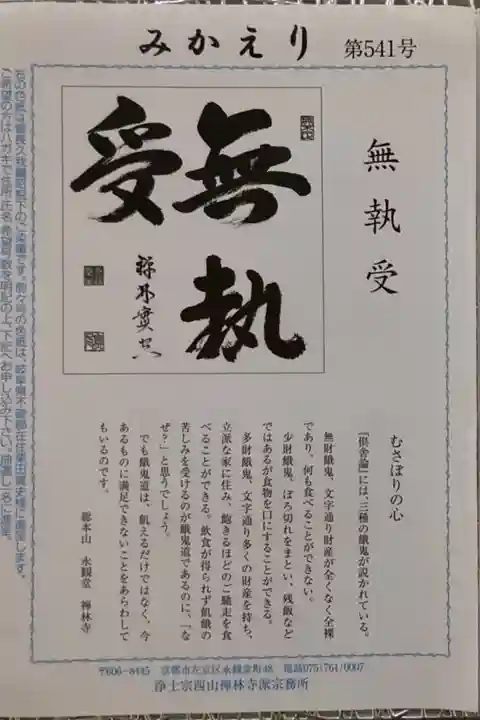 みかえり
第541号
無執受
無執
受
むさぼりの心
『倶舎論』には、三種の餓鬼が説かれている。
無財餓鬼、文字通り財産が全くなく全裸
であり。何も食べることができない。
少財餓鬼、ぼろ切れをまとい、残飯など
ではあるが食物を口にすることができる。
多財餓鬼、文字通り多くの財産を持ち、
立派な家に住み、飽きるほどのご馳走を食
べることができる。飲食が得られず飢餓の
苦しみを受けるのが餓鬼道であるのに、「な
ぜ？」と思うでしょう。
でも餓鬼道は、飢えるだけではなく、今
あるものに満足できないことをあらわして
もいるのです。
総本山 永観堂 禅林寺
ご希望の方はハガキで住所、氏名、希望号数を明記の上、下記へお申し込み下さい。抽選し一名に進呈。
〒606-8445 京都市左京区永観堂町48 電話075(761)0007
浄土宗西山禅林寺派宗務所